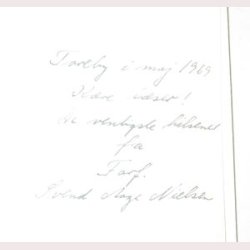 Toreby i maj 1969
Kære
De venligste hilsener
fra
Forf.
Svend Aage Nielsen